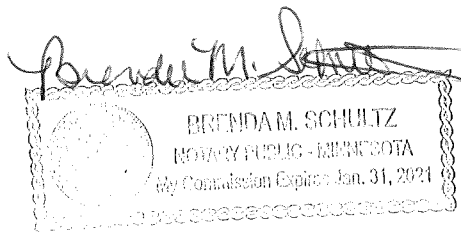 Brenda M. Schultz
BRENDA M. SCHULTZ
NOTARY PUBLIC - MINNESOTA
My Commission Expires Jan. 31, 2021